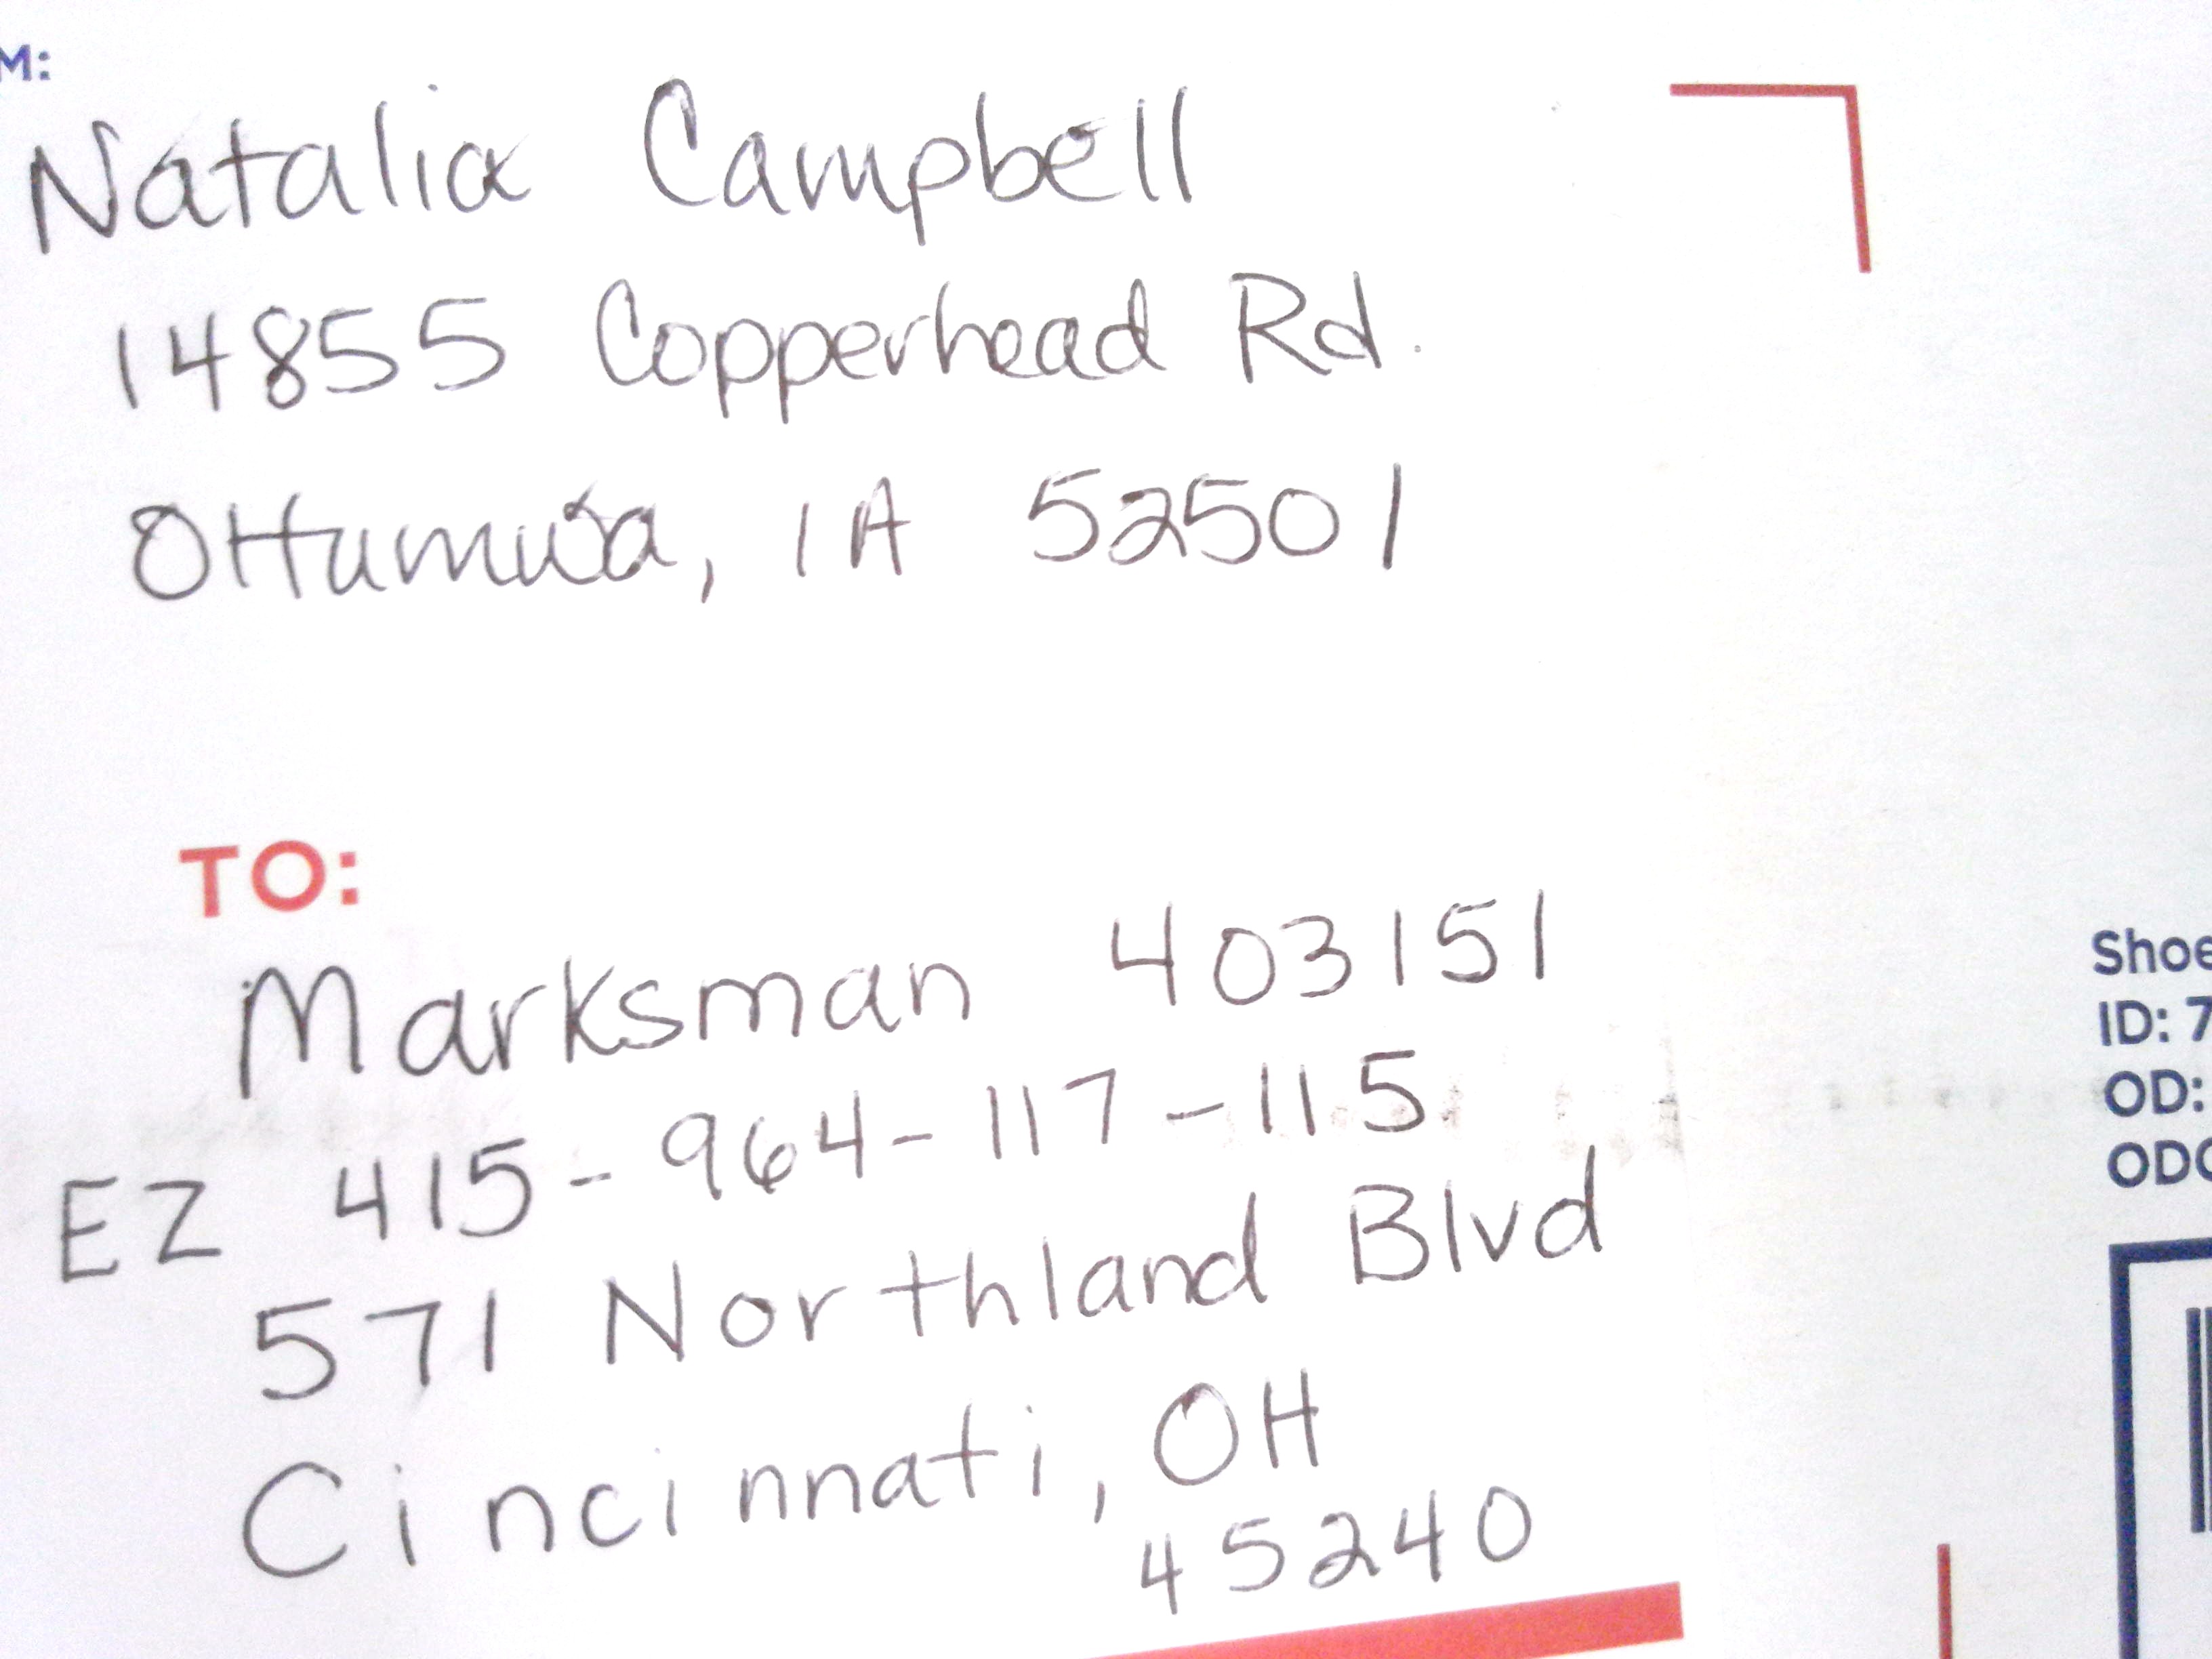 M:
Natalia Campbell
14855 Copperhead Rd.
Ottumwa, IA 52501
TO:
Marksman 403151
EZ 415-964-117-115
571 Northland Blvd
Cincinnati, OH
45240
Shoe
ID: 7
OD:
OD